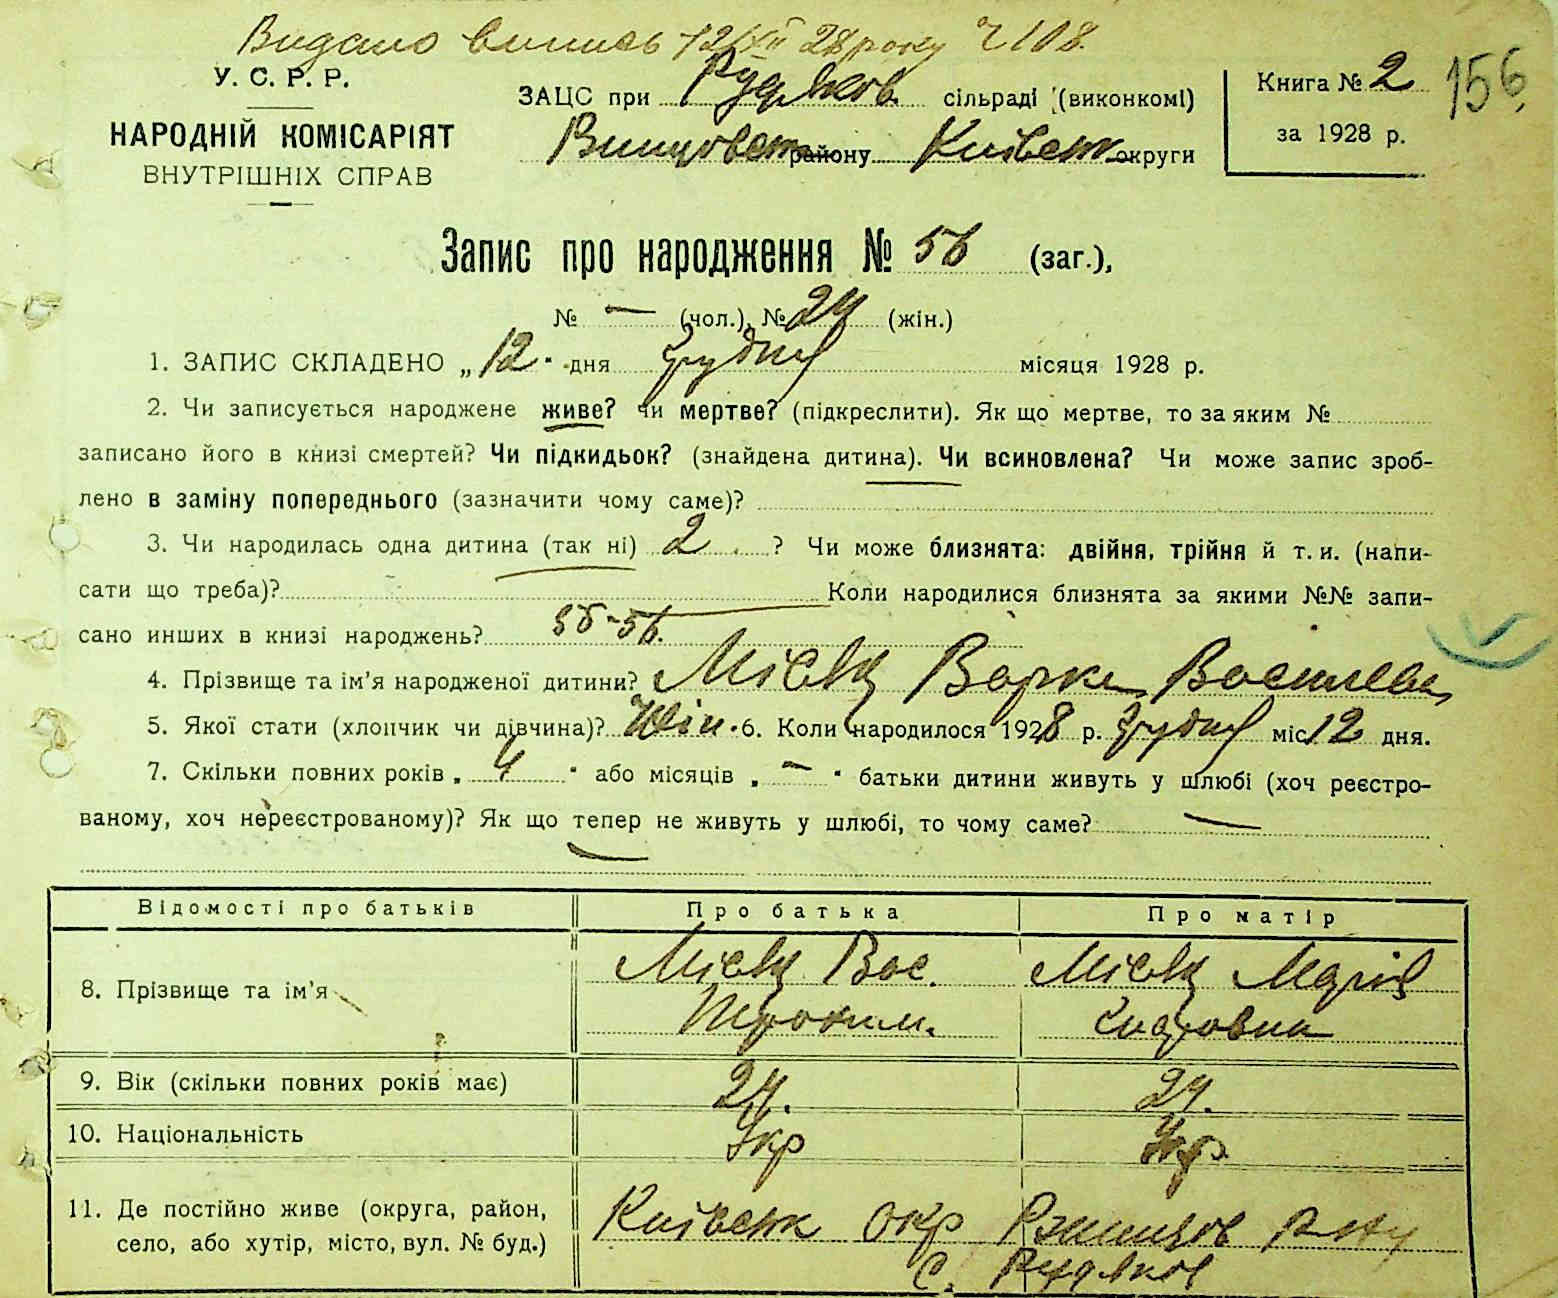 Видано виписъ 12/XII 28 року Ч 108.
У. С. Р. Р.
НАРОДНІЙ КОМІСАРІЯТ
ВНУТРІШНІХ СПРАВ
ЗАЦС при Рудяков. сільраді (виконкомі)
району Київськ округи
Книга № 2
за 1928 р.
156
Запис про народження № 56 (заг.),
№ — (чол.), № 24 (жін.)
1. ЗАПИС СКЛАДЕНО „ 12 " дня Грудня місяця 1928 р.
2. Чи записується народжене живе? чи мертве? (підкреслити). Як що мертве, то за яким №
записано його в книзі смертей? Чи підкидьок? (знайдена дитина). Чи всиновлена? Чи може запис зроб-
лено в заміну попереднього (зазначити чому саме)?
3. Чи народилась одна дитина (так ні) 2 ? Чи може близнята: двійня, трійня й т. и. (напи-
сати що треба)? Коли народилися близнята за якими №№ запи-
сано инших в книзі народжень? 55-56.
4. Прізвище та ім'я народженої дитини? Місяць Варка Василевна
5. Якої стати (хлопчик чи дівчина)? Жін. 6. Коли народилося 1928 р. Грудня міс. 12 дня.
7. Скільки повних років „ 4 " або місяців „ — " батьки дитини живуть у шлюбі (хоч реєстро-
ваному, хоч нереєстрованому)? Як що тепер не живуть у шлюбі, то чому саме? —
Відомості про батьків Про батька Про матір
8. Прізвище та ім'я
Місяць Вас.
Трохим.
Місяць Марія
Сидровна
9. Вік (скільки повних років має) 24. 24.
10. Національність Укр Укр.
11. Де постійно живе (округа, район,
село, або хутір, місто, вул. № буд.)
Київськ окр Ржищов р-ну
с. Рудяков